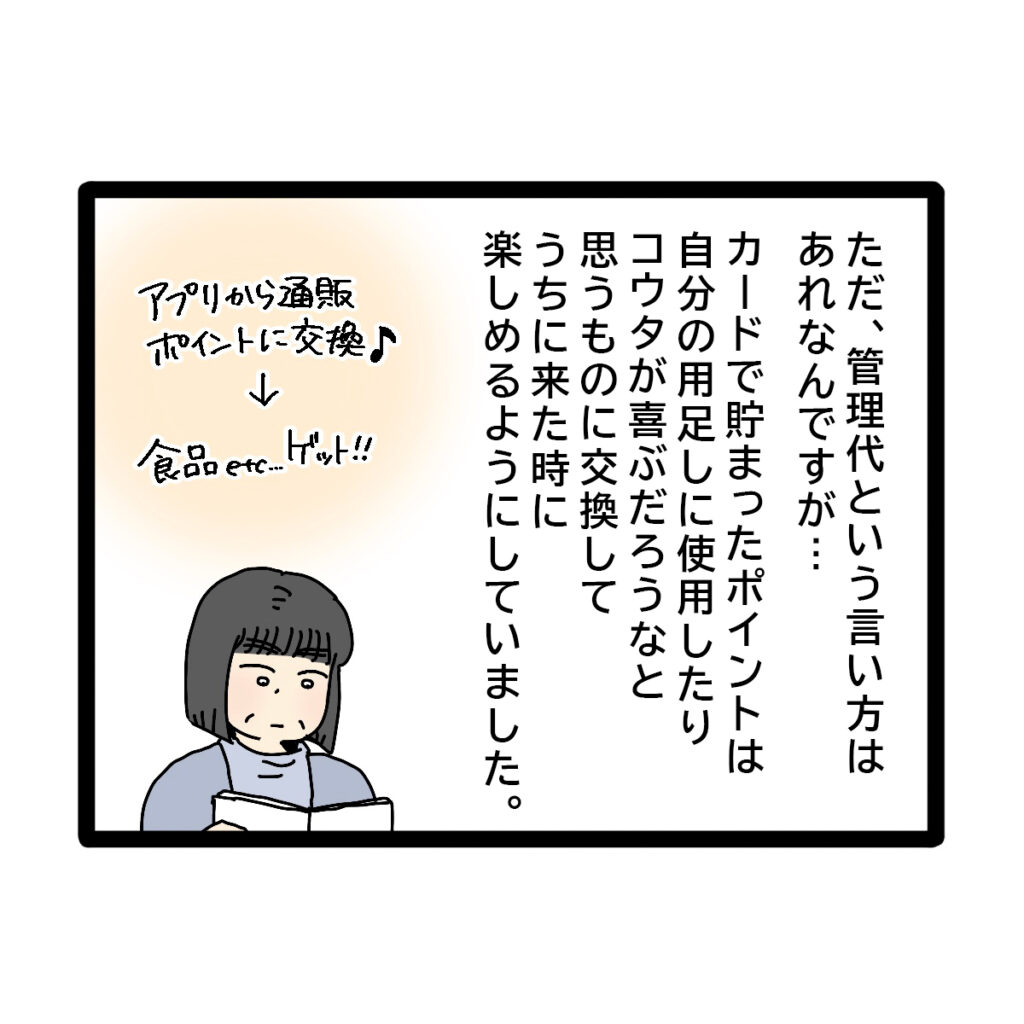 ただ、管理代という言い方は
あれなんですが…
カードで貯まったポイントは
自分の用足しに使用したり
コウタが喜ぶだろうなと
思うものに交換して
うちに来た時に
楽しめるようにしていました。
アプリから通販
ポイントに交換♪
↓
食品etc…ゲット!!